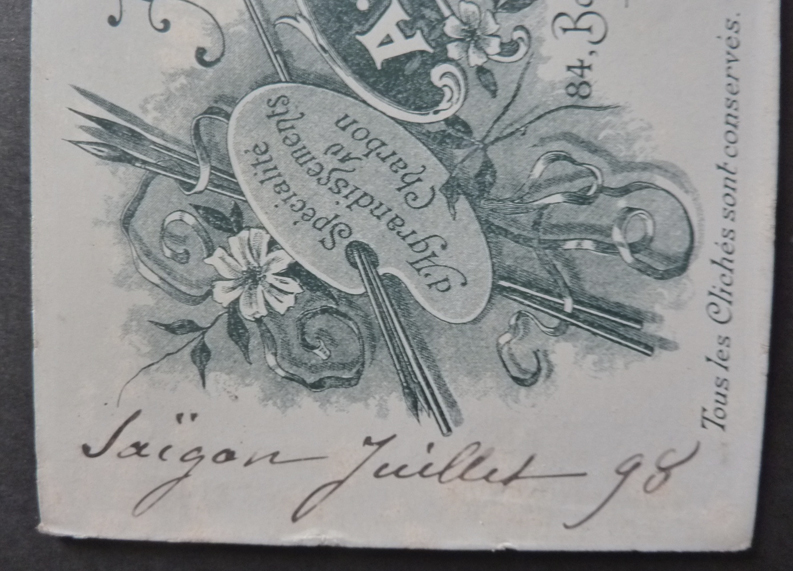 A.
84, Bo
Spécialité
d'Agrandissements
au
Charbon
Tous les Clichés sont conservés.
Saïgon Juillet 98